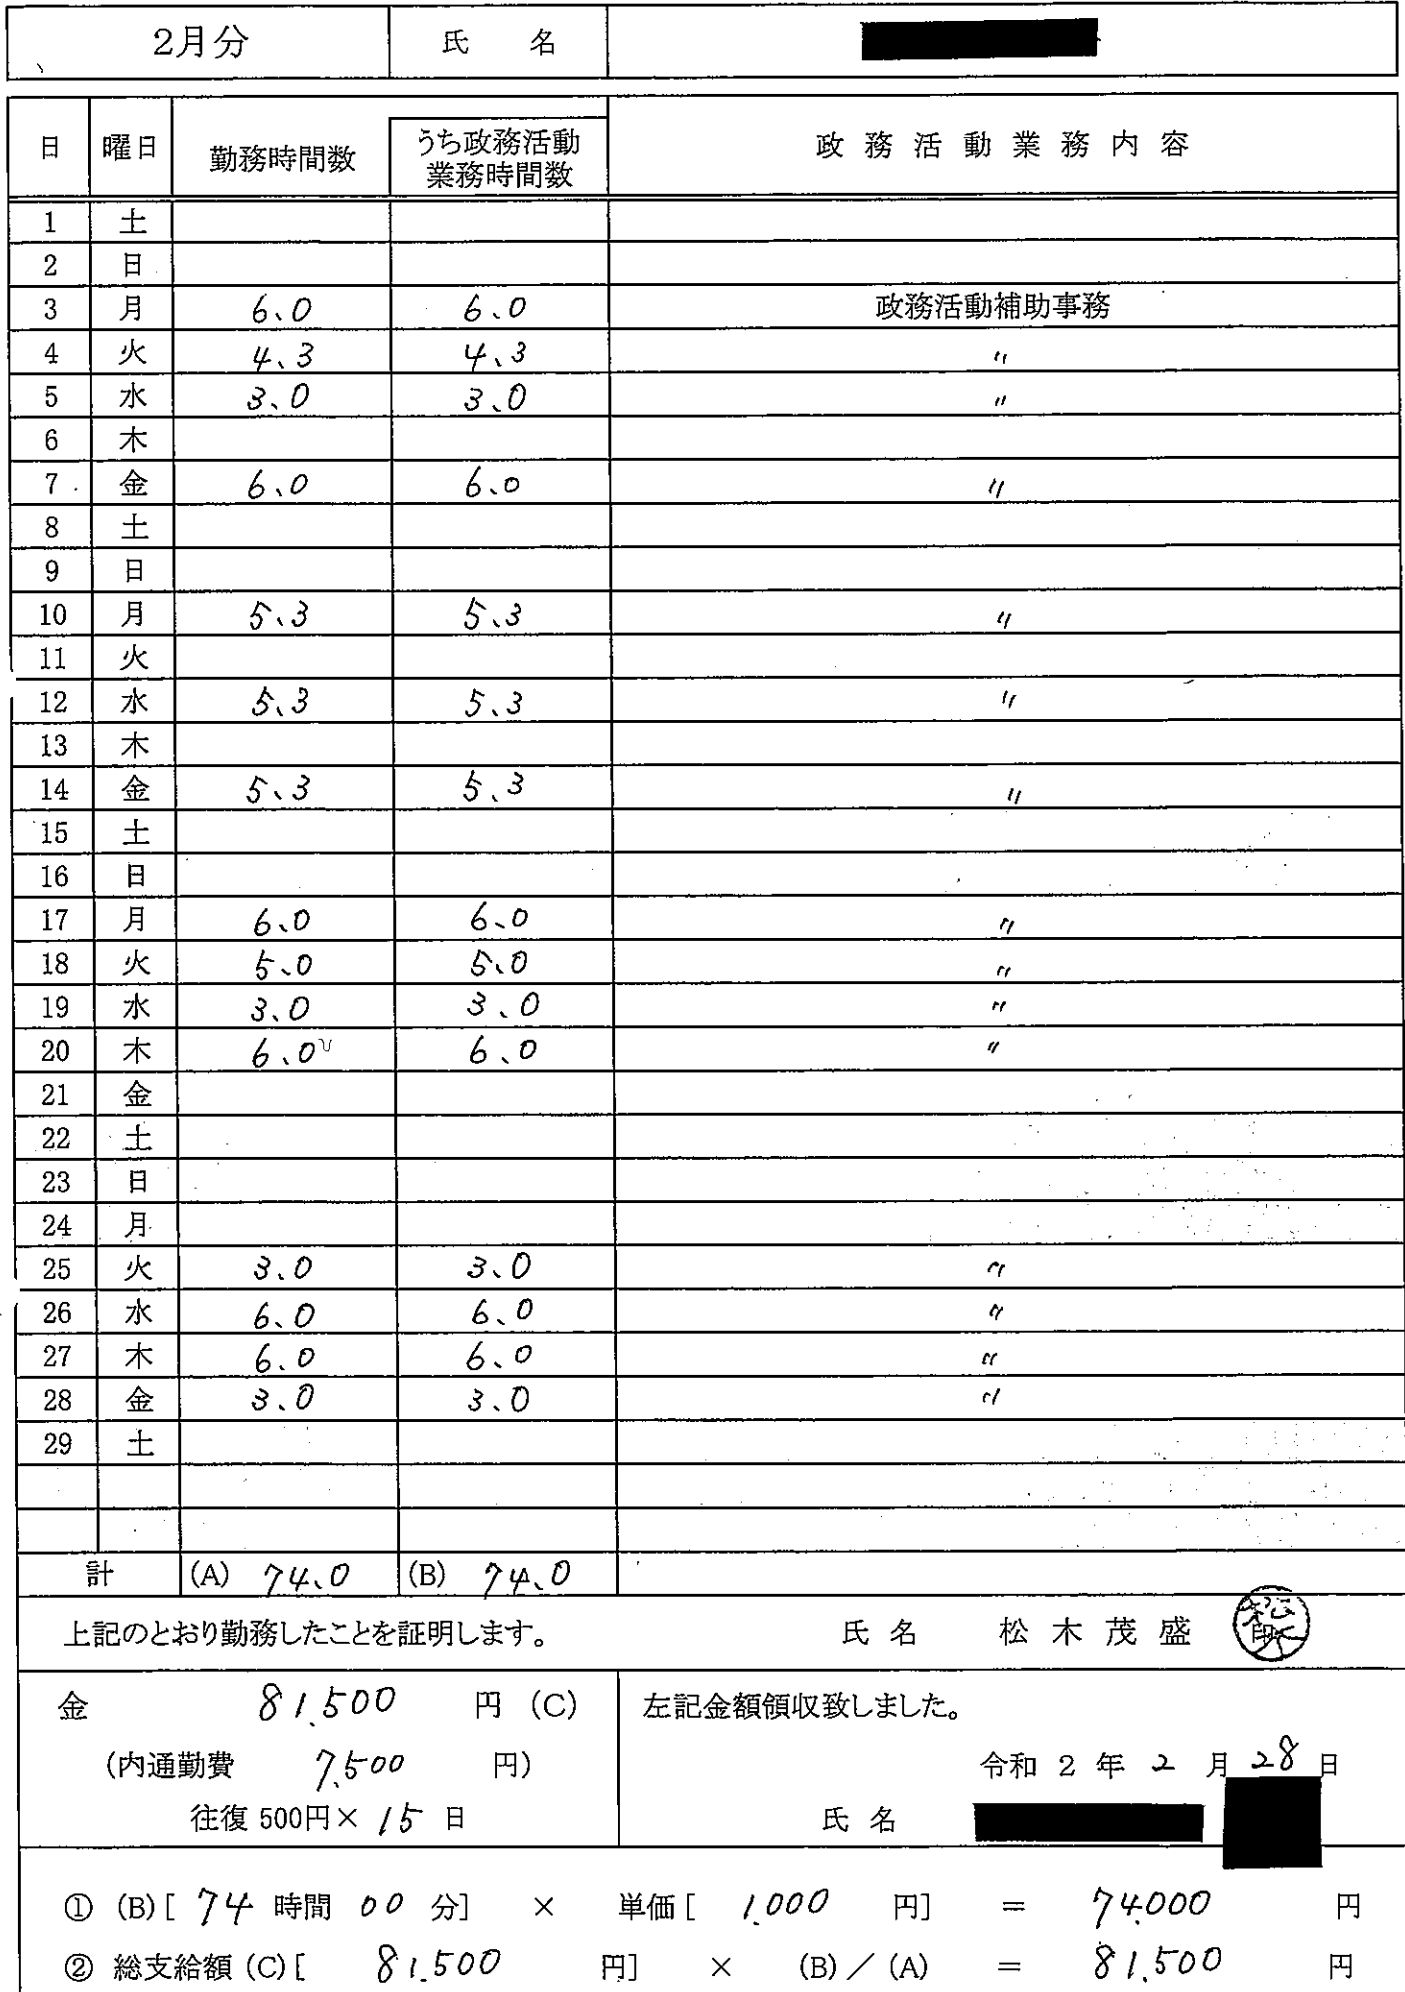 2月分 氏 名
日 曜日 勤務時間数 うち政務活動業務時間数 政務活動業務内容
1 土
2 日
3 月 6.0 6.0 政務活動補助事務
4 火 4、3 4、3 〃
5 水 3、0 3、0 〃
6 木
7 金 6、0 6、0 〃
8 土
9 日
10 月 5、3 5、3 〃
11 火
12 水 5、3 5、3 〃
13 木
14 金 5、3 5、3 〃
15 土
16 日
17 月 6、0 6、0 〃
18 火 5、0 5、0 〃
19 水 3、0 3、0 〃
20 木 6、0 6、0 〃
21 金
22 土
23 日
24 月
25 火 3、0 3、0 〃
26 水 6、0 6、0 〃
27 木 6、0 6、0 〃
28 金 3、0 3、0 〃
29 土
計 (A) 74、0 (B) 74、0
上記のとおり勤務したことを証明します。 氏 名 松 木 茂 盛
金 81,500 円 (C) 左記金額領収致しました。
(内通勤費 7,500 円) 令和 2 年 2 月 28 日
往復 500円× 15 日 氏 名
① (B)[ 74 時間 00 分] × 単価[ 1,000 円] = 74,000 円
② 総支給額 (C)[ 81,500 円] × (B)/(A) = 81,500 円